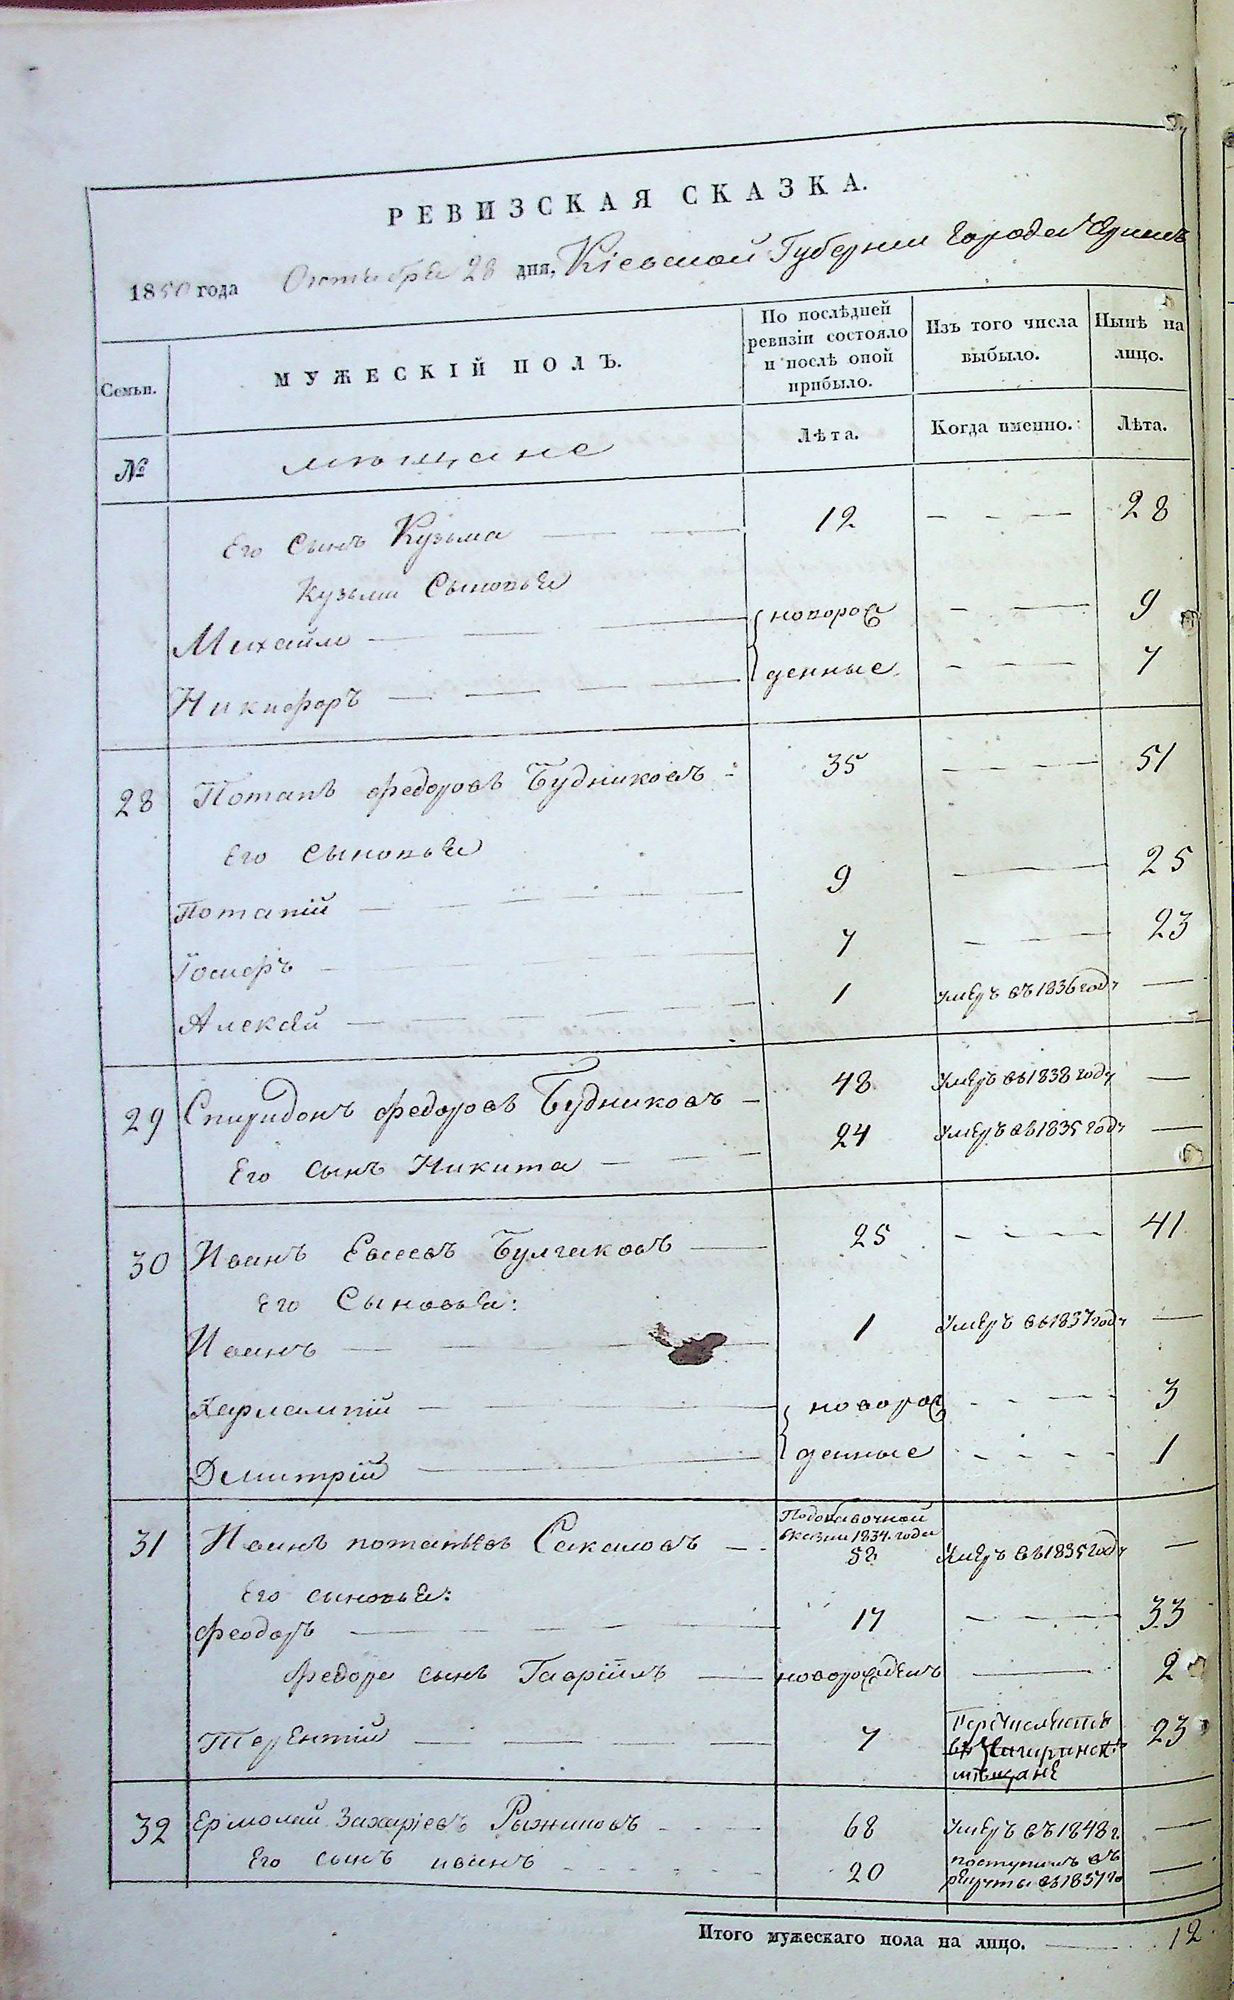 РЕВИЗСКАЯ СКАЗКА.
1850 года Октября 28 дня, Кіевской Губерніи Города
Семьи. МУЖЕСКІЙ ПОЛЪ. По послѣдней ревизіи состояло и послѣ оной прибыло. Изъ того числа выбыло. Нынѣ на лицо.
№ мѣщане Лѣта. Когда именно. Лѣта.
Его сынъ Кузьма 12 28
Кузьмы Сыновья
Михайло новорож 9
Никифоръ денные 7
28 Потапъ Федоровъ Будниковъ 35 51
Его сыновья
Потапій 9 25
Іосифъ 7 23
Алексѣй 1 умеръ въ 1836 году
29 Спиридонъ Федоровъ Будниковъ 48 умеръ въ 1838 году
Его сынъ Никита 24 умеръ въ 1835 году
30 Иванъ Евсеевъ Булгаковъ 25 41
Его Сыновья:
Иванъ 1 умеръ въ 1837 году
Харлампій новорож 3
Дмитрій денные 1
31 Иванъ Потапіевъ Сакаловъ По добавочной сказки 1834. года 52 умеръ въ 1835 году
Его сыновья:
Феодоръ 17 33
Федора сынъ Гавріилъ новорожденъ 2
Терентій 7 Перечисленъ въ Чигиринск. мѣщане 23
32 Ермолай Захаріевъ Рыжиковъ 68 умеръ въ 1848 г.
Его сынъ Иванъ 20 поступилъ въ рекруты въ 1837 го
Итого мужескаго пола на лицо. 12